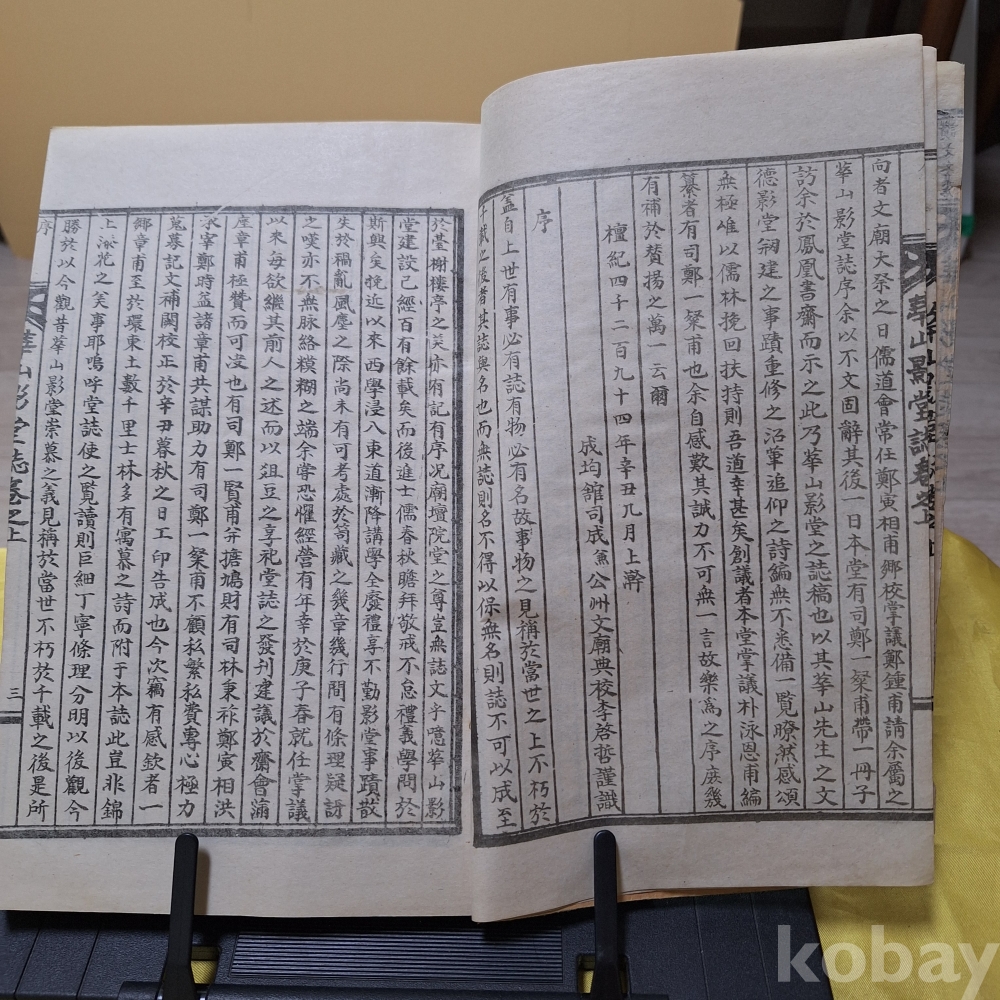 向者文廟大祭之日儒道會常任鄭寅相甫鄕校掌議鄭鍾甫請余屬之
華山影堂誌序余以不文固辭其後一日本堂有司鄭一粲甫帶一冊子
訪余於鳳凰書齋而示之此乃華山影堂之誌稿也以其華山先生之文
德影堂刱建之事蹟重修之沿革追仰之詩編無不悉備一覧瞭然感頌
無極唯以儒林挽回扶持則吾道幸甚矣創議者本堂掌議朴泳恩甫編
纂者有司鄭一粲甫也余自感歎其誠力不可無一言故樂爲之序庶幾
有補於賛揚之萬一云爾
檀紀四千二百九十四年辛丑九月上澣
成均舘司成兼公州文廟典校李啓哲謹識
序
盖自上世有事必有誌有物必有名故事物之見稱於當世之上不朽於
千載之後者其誌與名也而無誌則名不得以保無名則誌不可以成至
華山影堂誌卷之上
於臺榭樓亭之美亦有記有序况廟壇院堂之尊豈無誌文乎噫華山影
堂建設已經百有餘載矣而後進士儒春秋瞻拜敬戒不怠禮義學問於
斯興矣挽近以來西學浸八東道漸降講學全廢禮享不勤影堂事蹟散
失於禍亂風塵之際尚未有可考處於笥藏之幾章幾行間有條理疑訝
之嘆亦不無脉絡模糊之端余嘗恐懼經營有年幸於庚子春就任掌議
以來每欲繼其前人之述而以俎豆之享祀堂誌之發刊建議於齋會滿
座章甫極賛而可決也有司鄭一賢甫幷擔鳩財有司林秉祚鄭寅相洪
承宰鄭時益諸章甫共謀助力有司鄭一粲甫不顧私繁私費專心極力
蒐募記文補闕校正於辛丑暮秋之日工印告成也今次竊有感欽者一
鄕章甫至於環東土數千里士林多有寓慕之詩而附于本誌此豈非錦
上添花之美事耶嗚呼堂誌使之覧讀則巨細丁寧條理分明以後觀今
勝於以今觀昔華山影堂崇慕之義見稱於當世不朽於千載之後是所
序
華山影堂誌卷之上
三
kobay